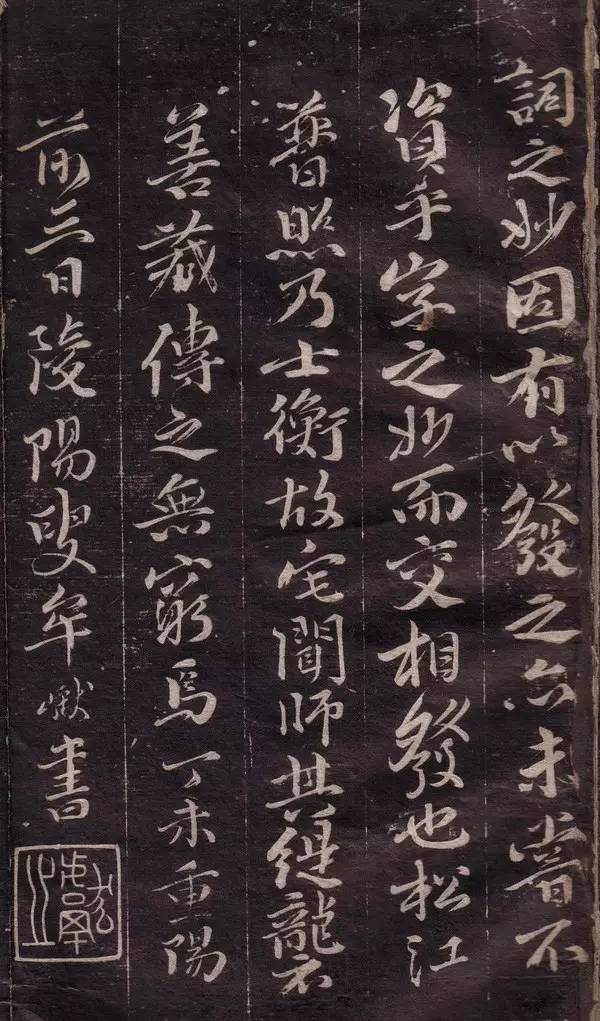 詞之妙因有以發之亦未嘗不
資乎字之妙而交相發也松江
普照乃士衡故宅聞師其緹龔衣
善藏傳之無窮焉丁未重陽
前三日陵陽叟牟巘書